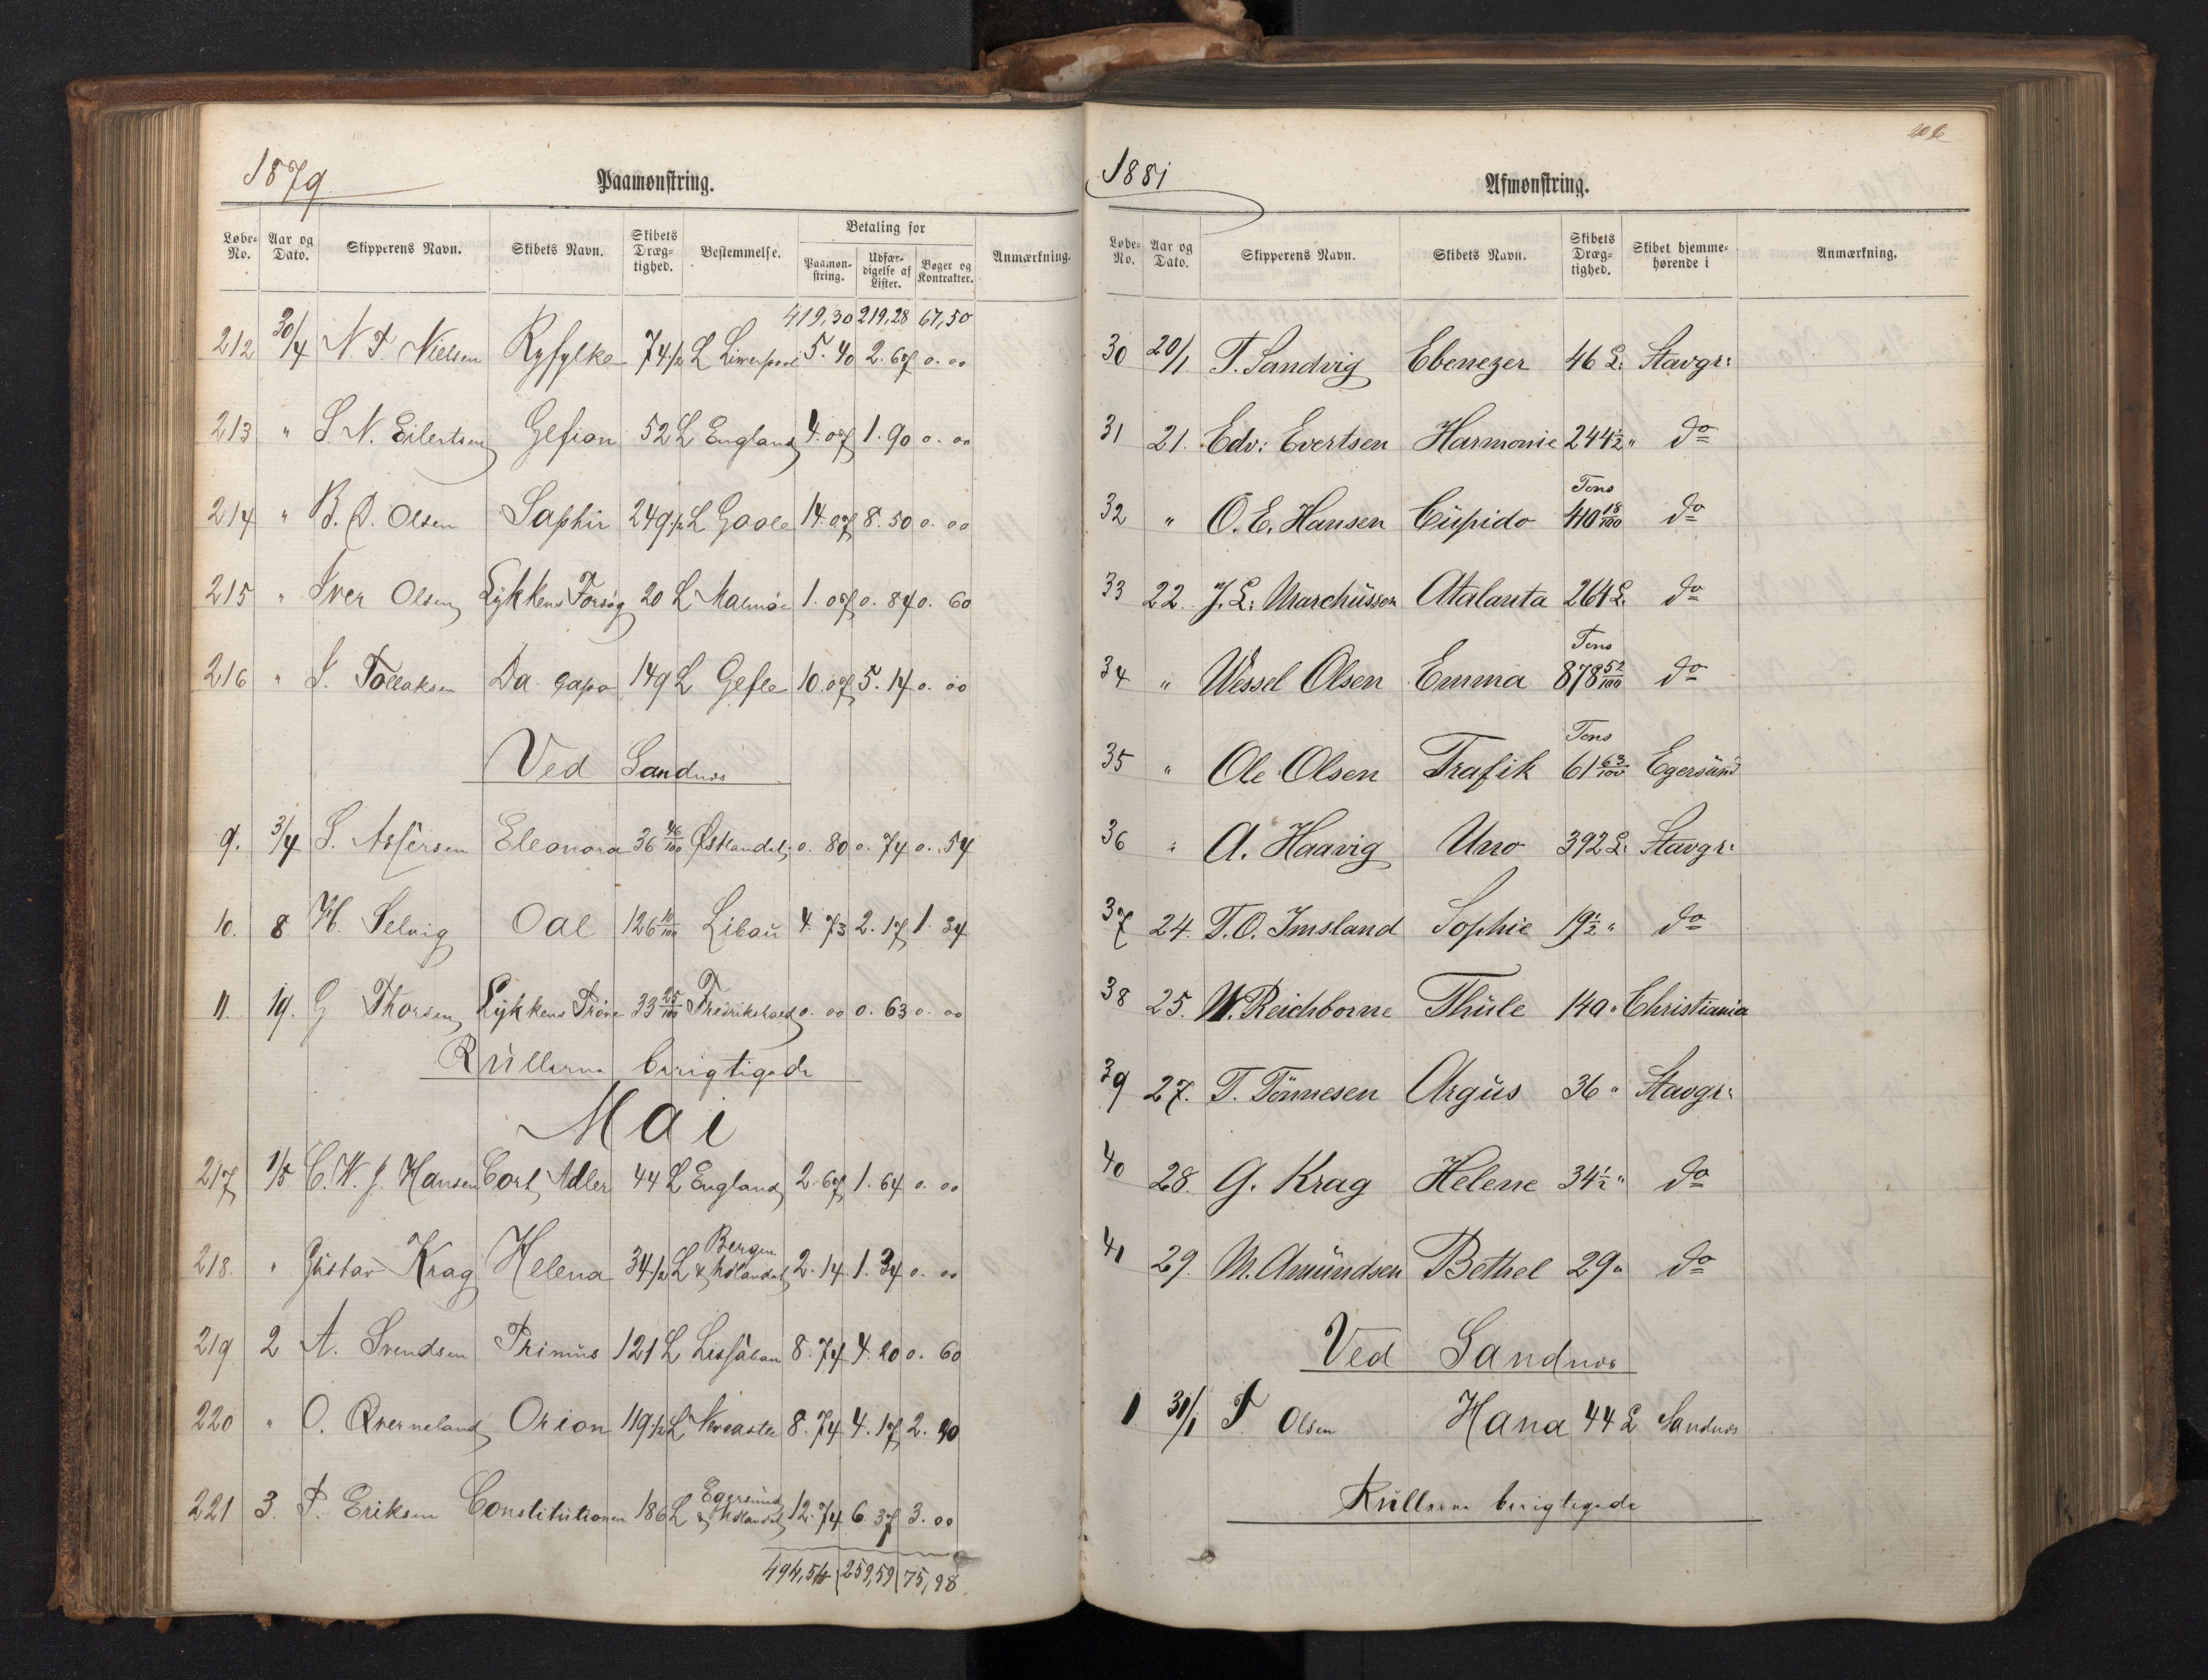 1879
Paamønstring.
Løbe-No. Aar og Dato. Skipperens Navn. Skibets Navn. Skibets Dræg-tighed. Bestemmelse. Betaling for Paamøn-string. Udfær-digelse af Lister. Bøger og Kontrakter. Anmærkning.
419,30 219,28 67,50
212 30/4 N. T. Nielsen Ryfylke 74 1/2 L Liverpool 5. 40 2. 67 0. 00
213 " S. N. Eilertsen Gefion 52 L England 4. 07 1. 90 0. 00
214 " B. D. Olsen Saphir 249 1/2 L Goole 14. 07 8. 50 0. 00
215 " Iver Olsen Lykkens Forsøg 20 L Malmöe 1. 07 0. 84 0. 60
216 " S. Tollaksen Da capo 149 L Gefle 10. 07 5. 14 0. 00
Ved Sandnes
9. 3/4 S. Assersen Eleonora 36 46/100 Østlandet 0. 80 0. 74 0. 54
10. 8 H. Selvig Oal 126 10/100 Libau 4. 73 2. 17 1. 34
11. 19. G Thorsen Lykkens Prøve 33 25/100 Fredrikstad 0. 00 0. 63 0. 00
Rullerne berigtigede
Mai
217 1/5 C. W. J. Hansen Cort Adler 44 L England 2. 67 1. 64 0. 00
218. " Gustav Krag Helena 34 1/2 L Bergen & Udlandet 2. 14 1. 34 0. 00
219 2 A. Svendsen Primus 121 L Lissabon 8. 74 4. 20 0. 60
220 " O. Qverneland Orion 119 1/2 L Newcastle 8. 74 4. 17 2. 40
221 3. P. Eriksen Constitutionen 186 L Egersund & Udlandet 12. 74 6. 37 3. 00
494,54 259,59 75,98
1881
Afmønstring.
Løbe-No. Aar og Dato. Skipperens Navn. Skibets Navn. Skibets Dræg-tighed. Skibet hjemme-hørende i Anmærkning.
30 20/1 T. Sandvig Ebenezer 46 L. Stavgr:
31 21. Edv: Evertsen Harmonie 244 1/2 " do
32 " O. E. Hansen Cupido Tons 410 18/100 do
33 22. J. L. Marchussen Atalanta 264 L. do
34 " Wessel Olsen Emma Tons 878 52/100 do
35 " Ole Olsen Trafik Tons 61 63/100 Egersund
36 " A. Haavig Uno 392 L. Stavgr:
37 24. T. O. Imsland Sophie 19 1/2 " do
38 25. W. Reichborne Thule 140 " Christiania
39 27. T. Tönnesen Argus 36 " Stavgr:
40 28. G. Krag Helene 34 1/2 " do
41 29. M. Amundsen Bethel 29 " do
Ved Sandnes
1 31/1 T Olsen Hana 44 L Sandnes
Rullerne berigtigede